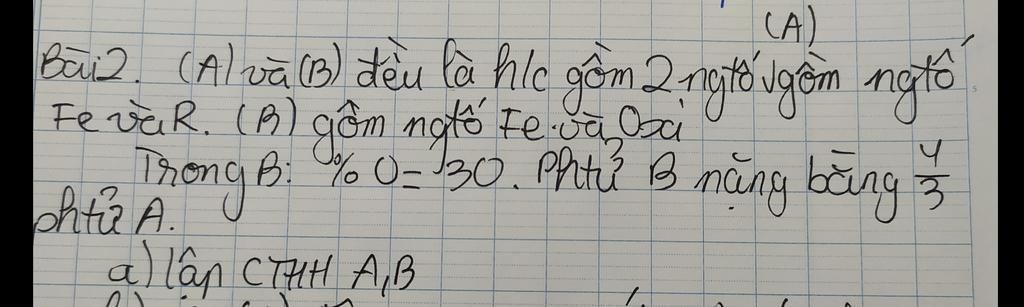 (A)
Bài 2. (A) và (B) đều là h/c gồm 2 ngtố, gồm ngtố
Fe và R. (B) gồm ngtố Fe và Oxi
Trong B: % O = 30. Phtử B nặng bằng 4/3
phtử A.
a) lập CTHH A, B